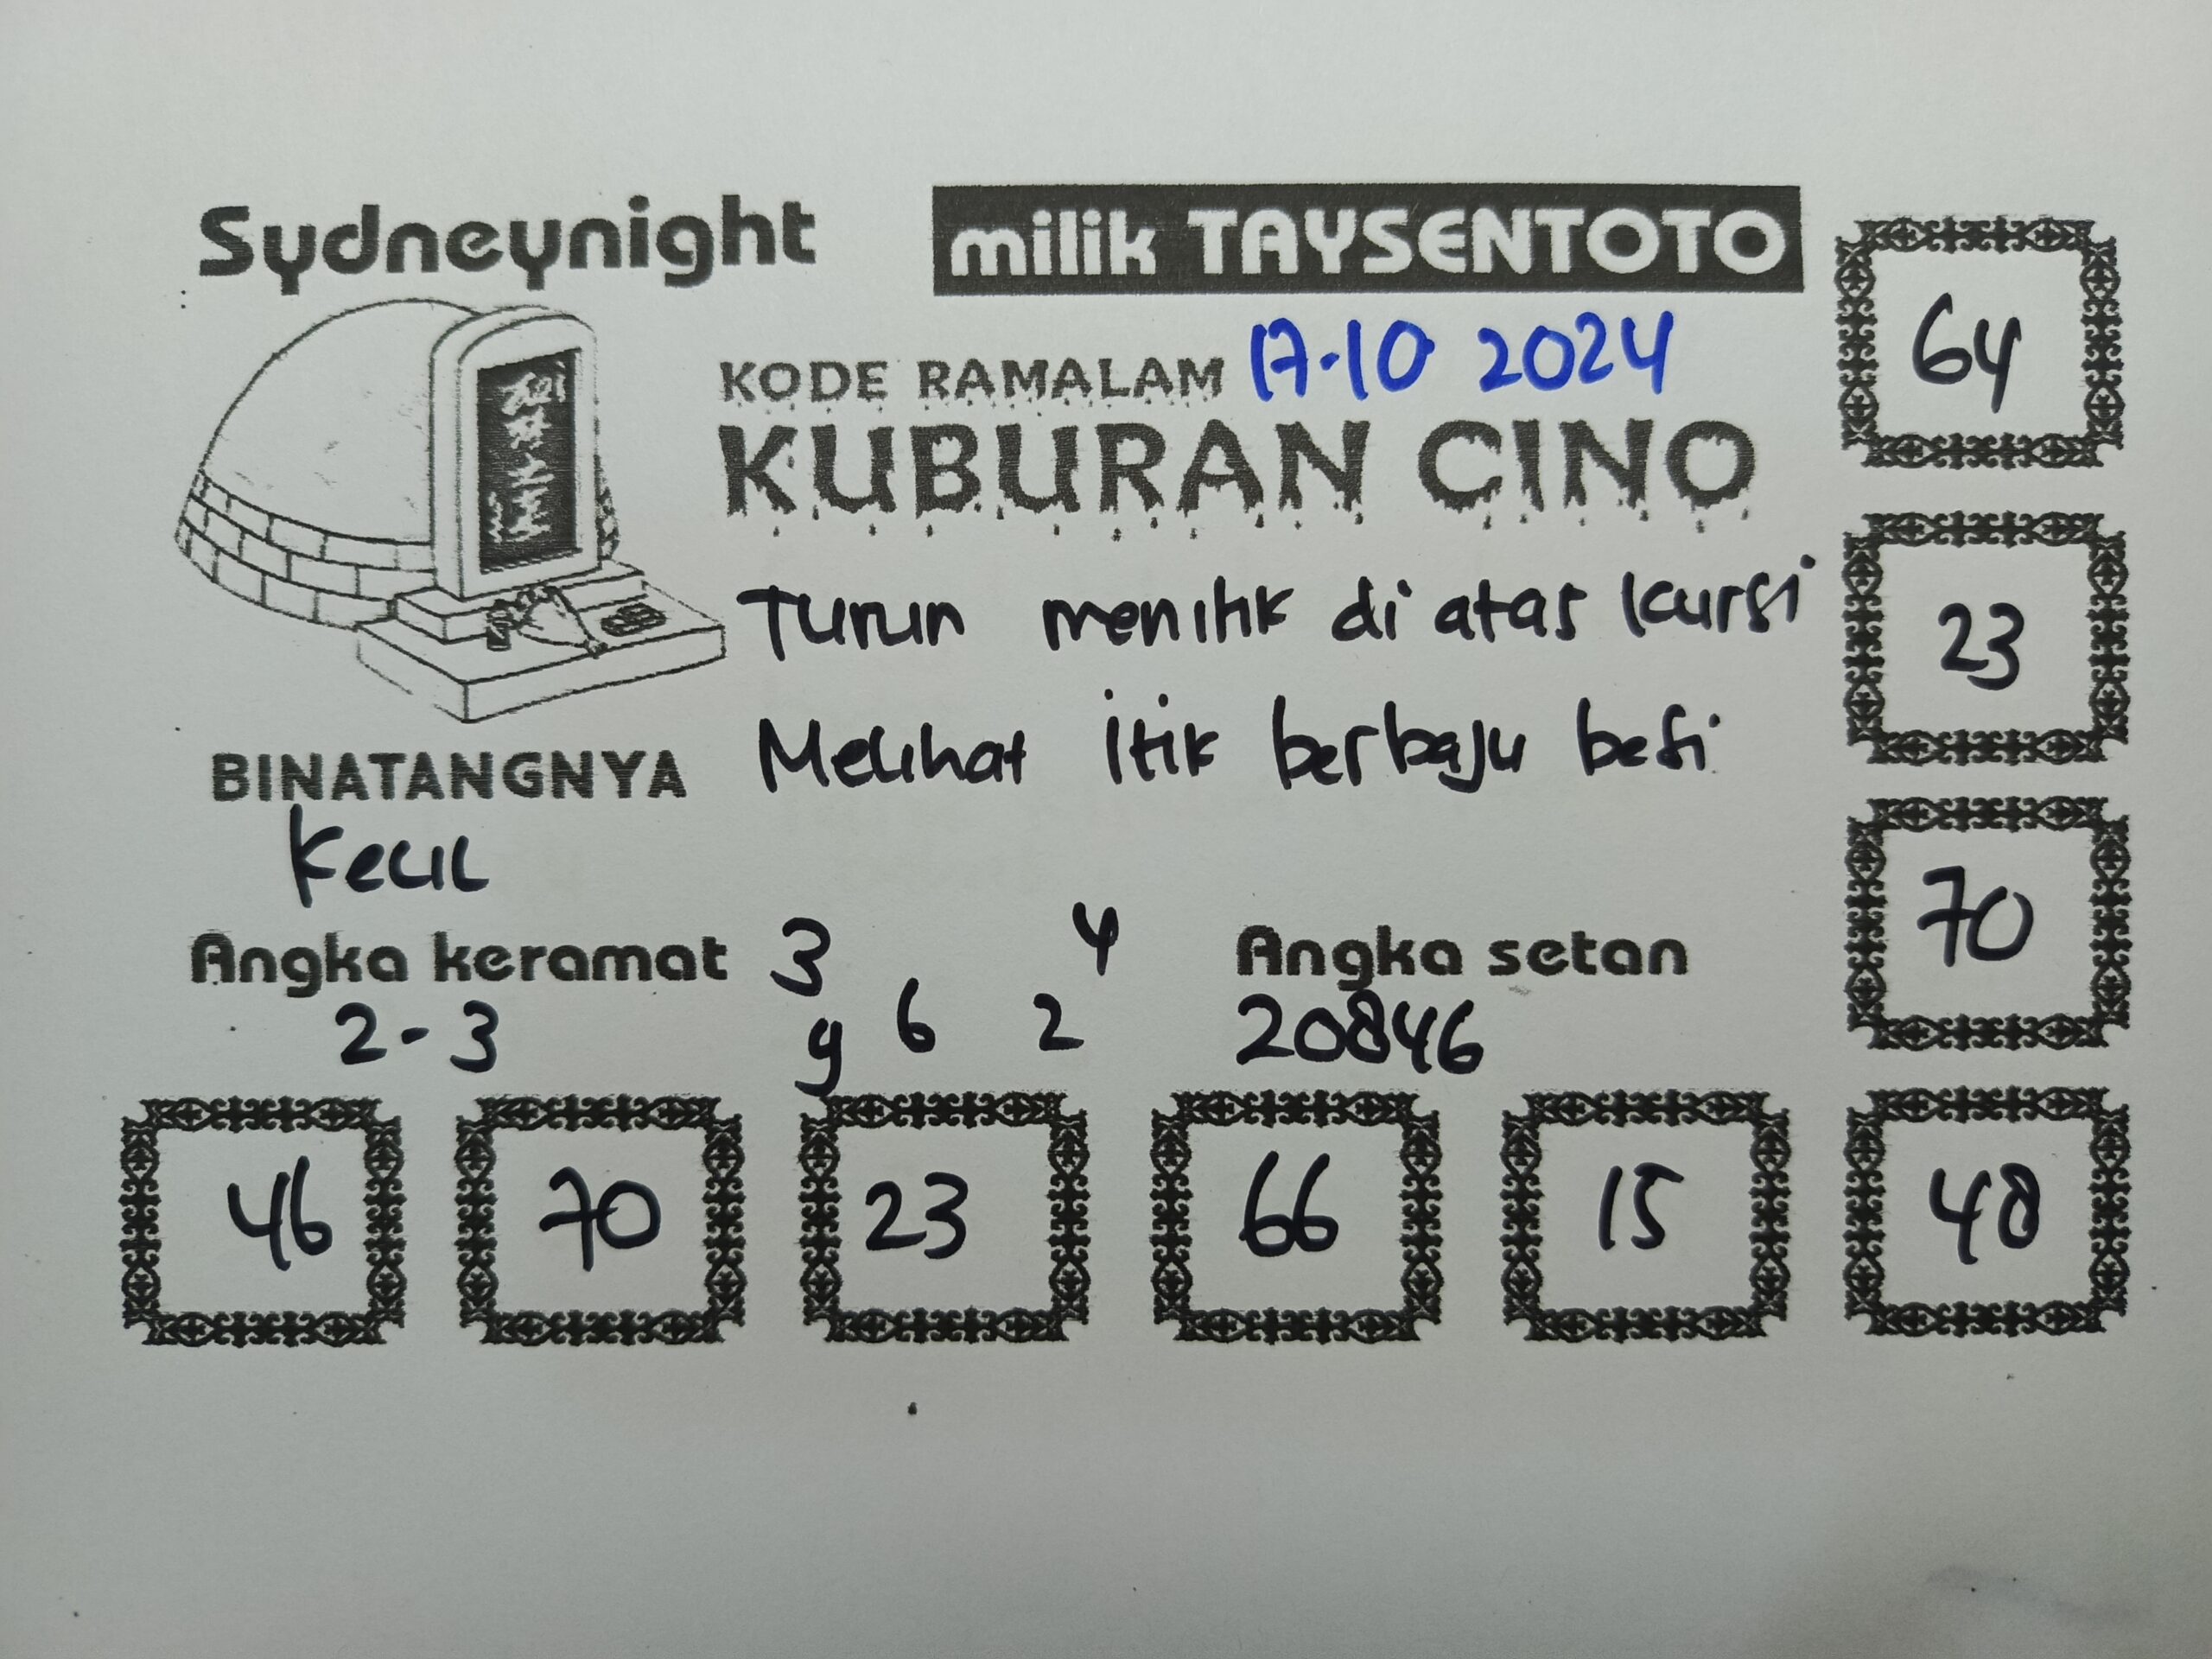 Sydneynight
milik TAYSENTOTO
64
KODE RAMALAM 17-10 2024
KUBURAN CINO
Turun menitik di atas kursi
23
Melihat itik berbaju besi
BINATANGNYA
Kecil
70
Angka keramat
2-3
3 4
9 6 2
Angka setan
20846
46 70 23 66 15 48